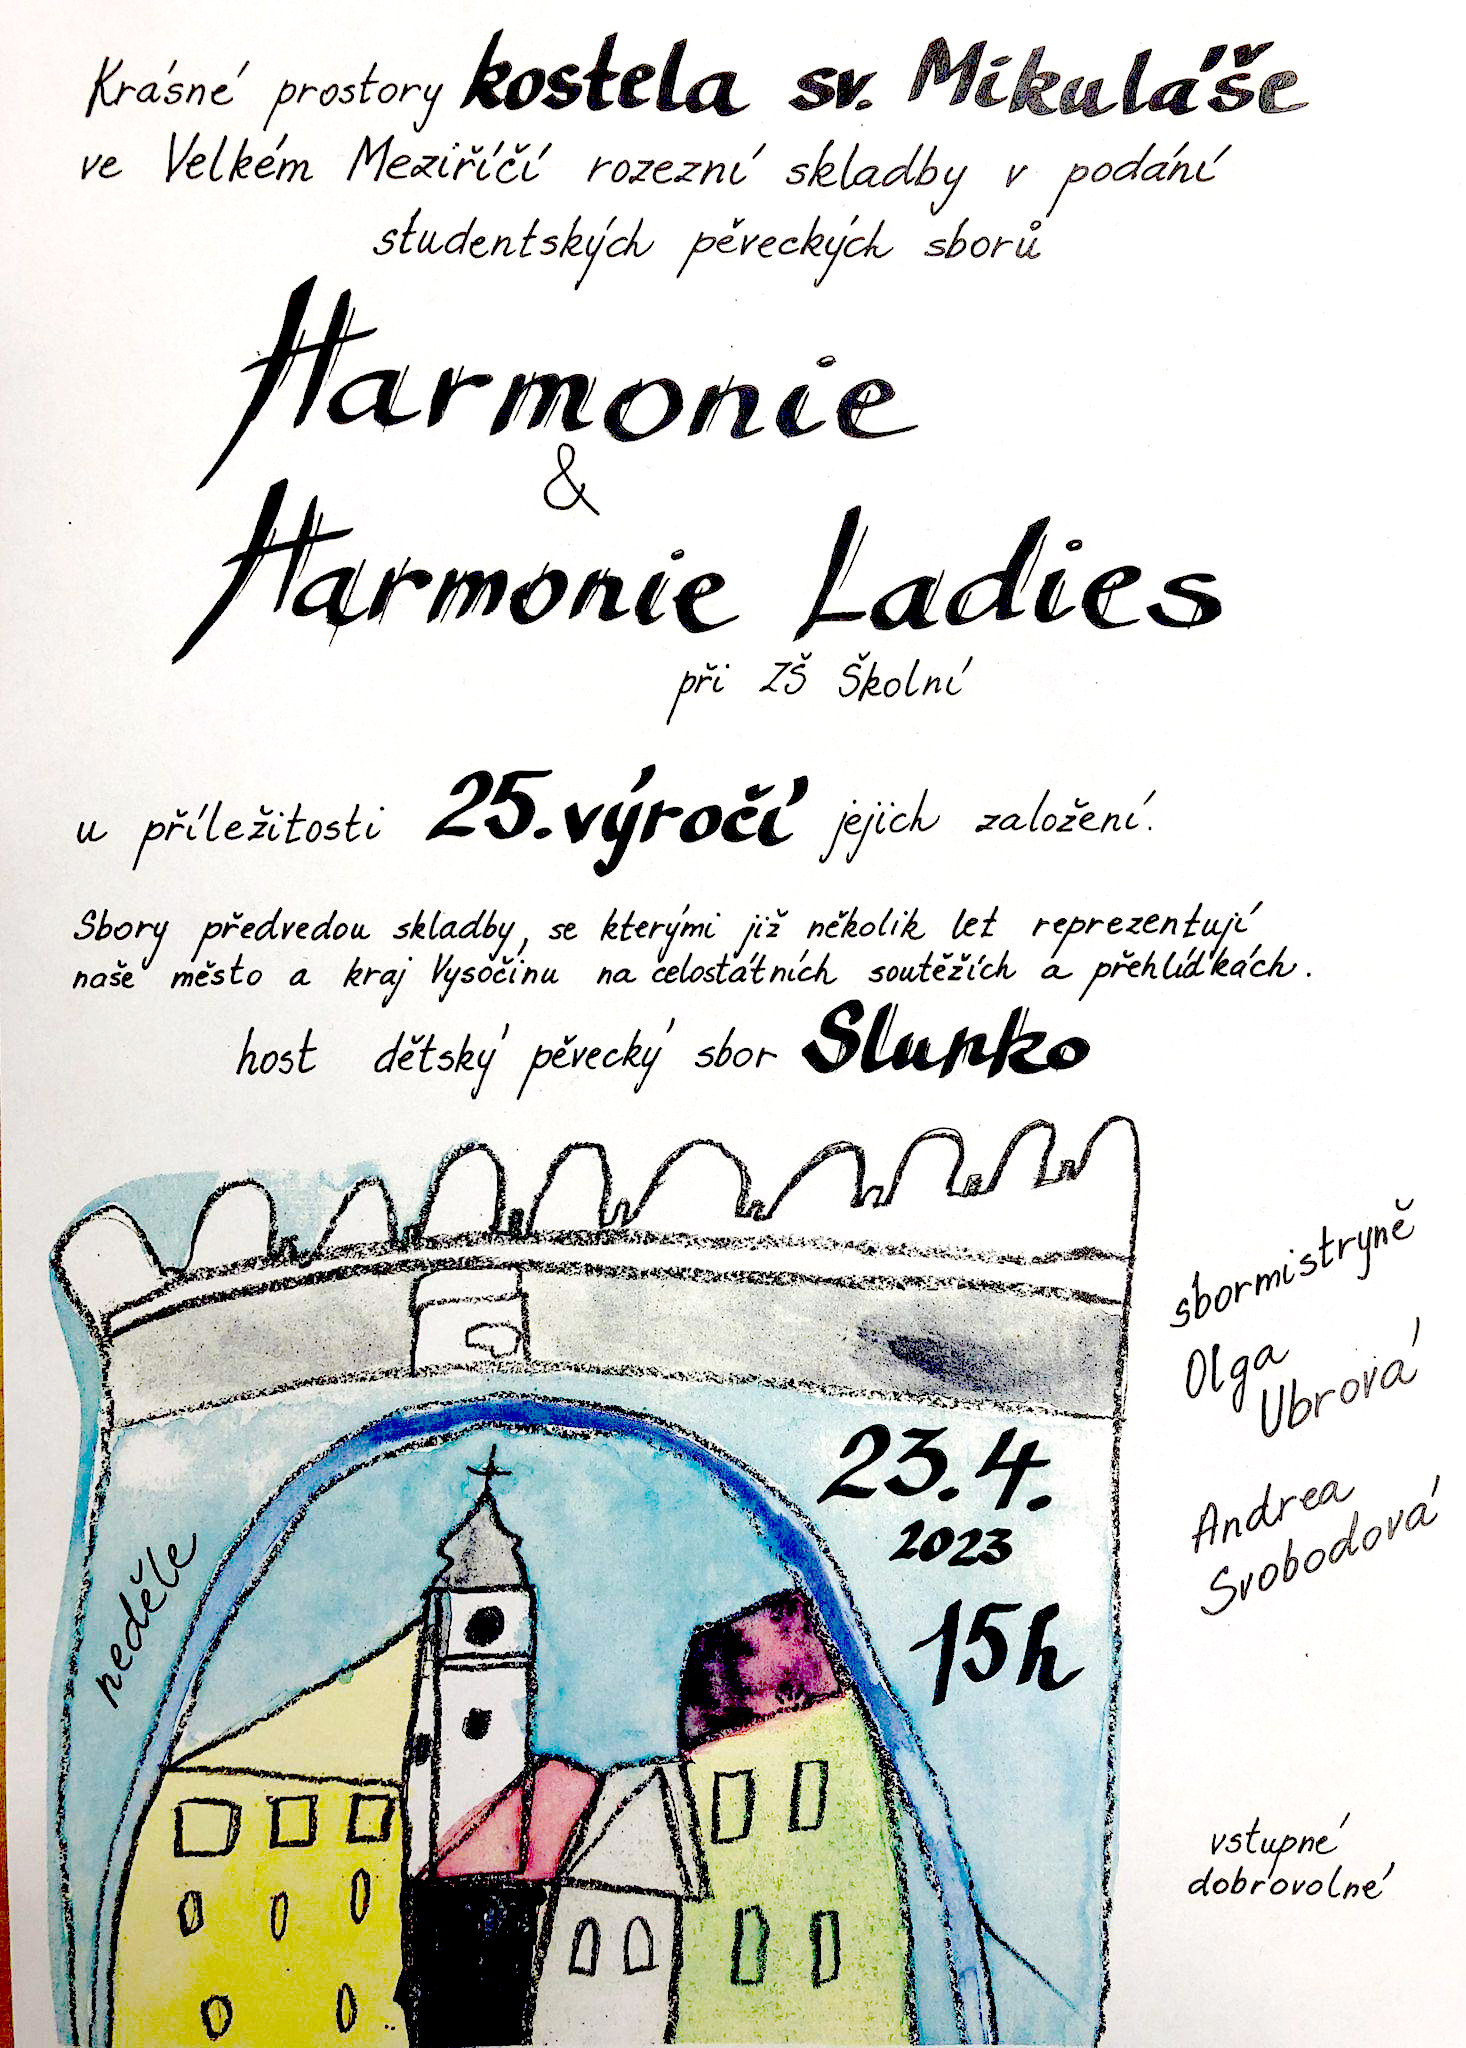 Krásné prostory kostela sv. Mikuláše
ve Velkém Meziříčí rozezní skladby v podání
studentských pěveckých sborů
Harmonie
&
Harmonie Ladies
při ZŠ Školní
u příležitosti 25. výročí jejich založení.
Sbory předvedou skladby, se kterými již několik let reprezentují
naše město a kraj Vysočinu na celostátních soutěžích a přehlídkách.
host dětský pěvecký sbor Slunko
sbormistryně
Olga
Ubrová
Andrea
Svobodová
neděle
23.4.
2023
15h
vstupné
dobrovolné